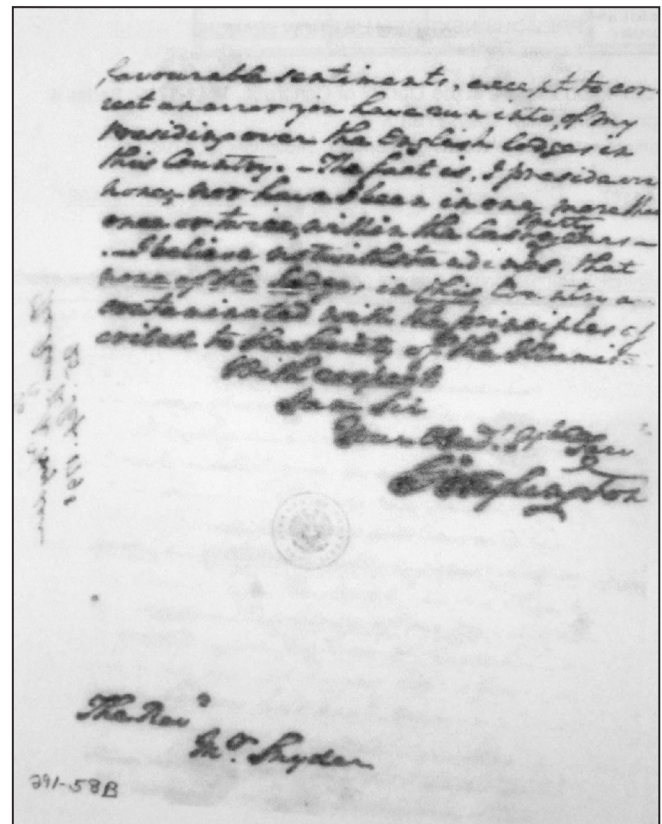 favourable sentiments, except to cor-
rect an error you have run into, of my
presiding over the English lodges in
this Country. – The fact is, I preside over
none, nor have I been in one more than
once or twice, within the last thirty years –
. I believe notwithstandings, that
none of the Lodges in this Country are
contaminated with the principles
ascribed to the Society of the Illumi
With respect
I am Sir
Your Obed.t
G. Washington
The Rev.d
Mr. Snyder
291-58B